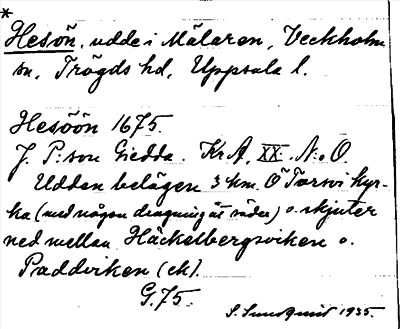 *
Hesön, udde i Mälaren, Veckholm
sn, Trögds hd, Uppsala l.
Hesöön 1675.
J. P:son Giedda. Kr A, XX. N:o O.
Udden belägen 3 km. Ö Torsvi kyr-
ka (med någon dragning åt söder) o. skjuter
ned mellan Häckelbergsviken o.
Paddviken (ek).
G. 75.
S. Sundquist 1935.